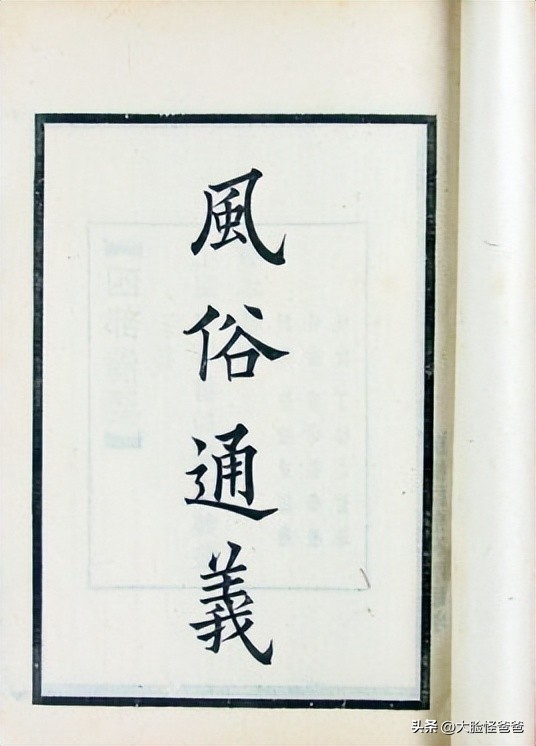 風俗通義
头条 @大脸怪爸爸